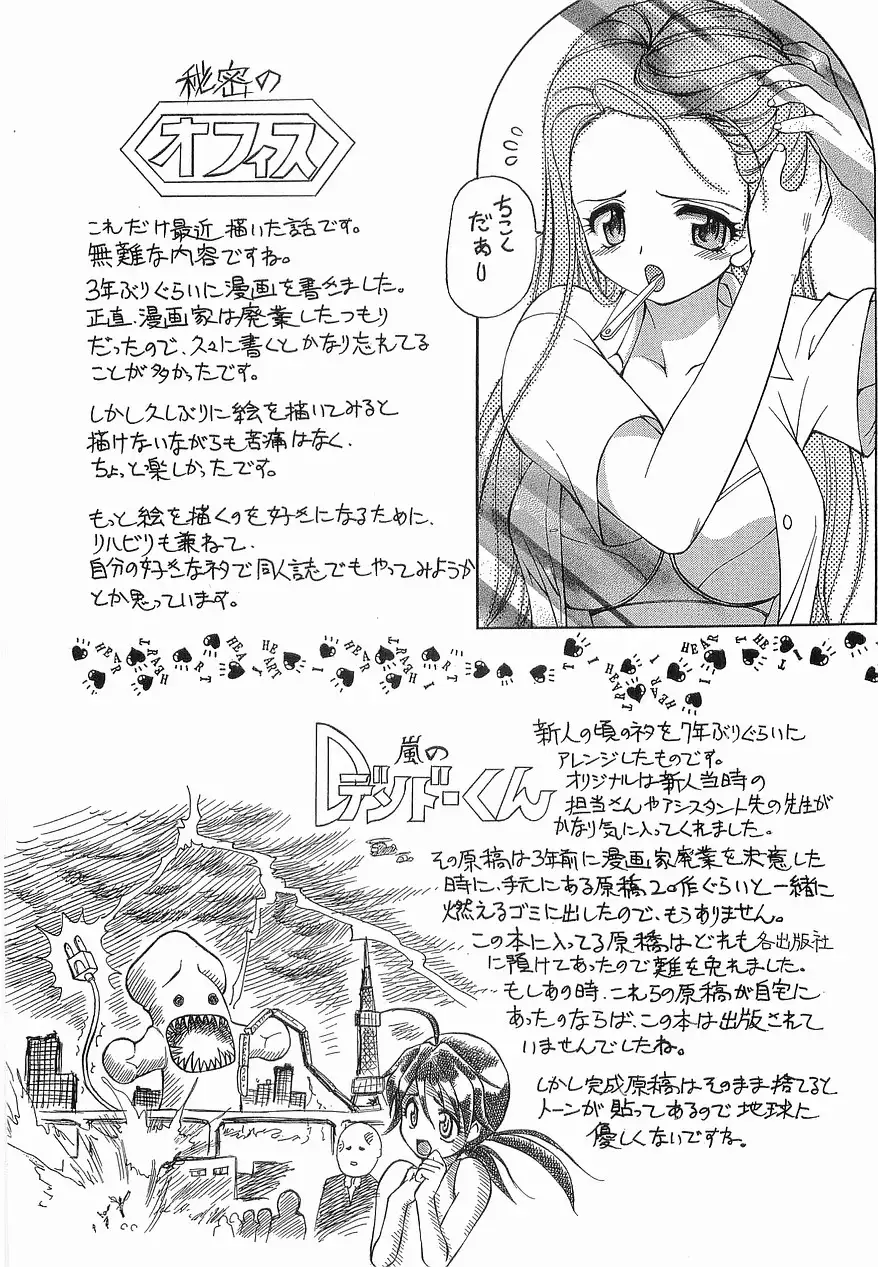 秘密の
オフィス
ちこく
だぁー
これだけ最近描いた話です。
無難な内容ですね。
3年ぶりぐらいに漫画を書きました。
正直、漫画家は廃業したつもり
だったので、久々に書くとかなり忘れてる
ことが多かったです。
しかし久しぶりに絵を描いてみると
描けないながらも苦痛はなく、
ちょっと楽しかったです。
もっと絵を描くのを好きになるために、
リハビリも兼ねて、
自分の好きなネタで同人誌でもやってみようか
とか思っています。
嵐の
Dデンドーくん
新人の頃のネタを7年ぶりぐらいに
アレンジしたものです。
オリジナルは新人当時の
担当さんやアシスタント先の先生が
かなり気に入ってくれました。
その原稿は3年前に漫画家廃業を決意した
時に、手元にある原稿20作ぐらいと一緒に
燃えるゴミに出したので、もうありません。
この本に入ってる原稿はどれも各出版社
に預けてあったので難を免れました。
もしあの時、これらの原稿が自宅に
あったのならば、この本は出版されて
いませんでしたね。
しかし完成原稿はそのまま捨てると
トーンが貼ってあるので地球に
優しくないですね。